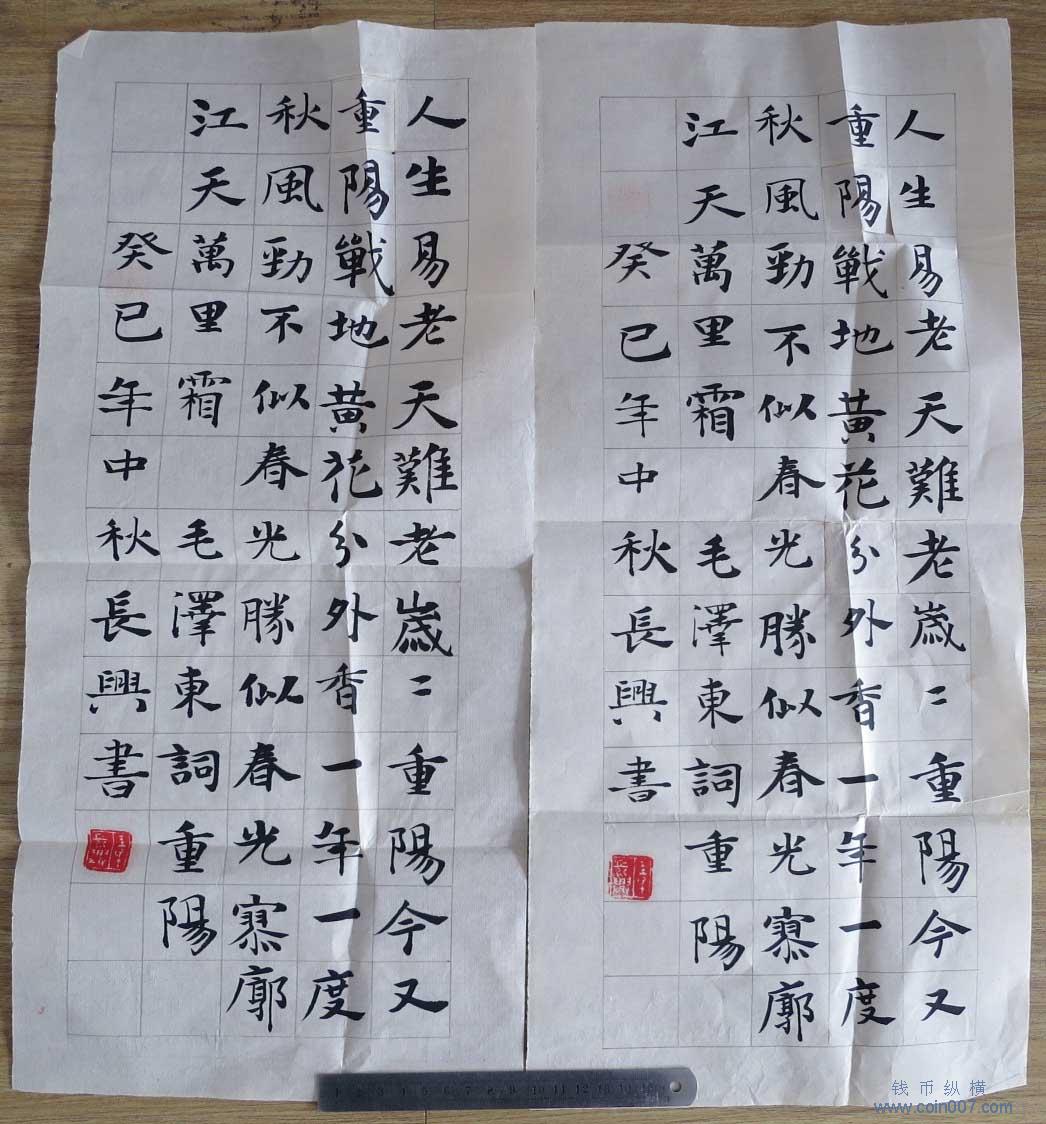 人生易老天難老歲〻重陽今又
重陽戰地黃花分外香一年一度
秋風勁不似春光勝似春光寥廓
江天萬里霜 毛澤東詞重陽
癸巳年中秋長興書
人生易老天難老歲〻重陽今又
重陽戰地黃花分外香一年一度
秋風勁不似春光勝似春光寥廓
江天萬里霜 毛澤東詞重陽
癸巳年中秋長興書
钱币纵横
www.coin007.com